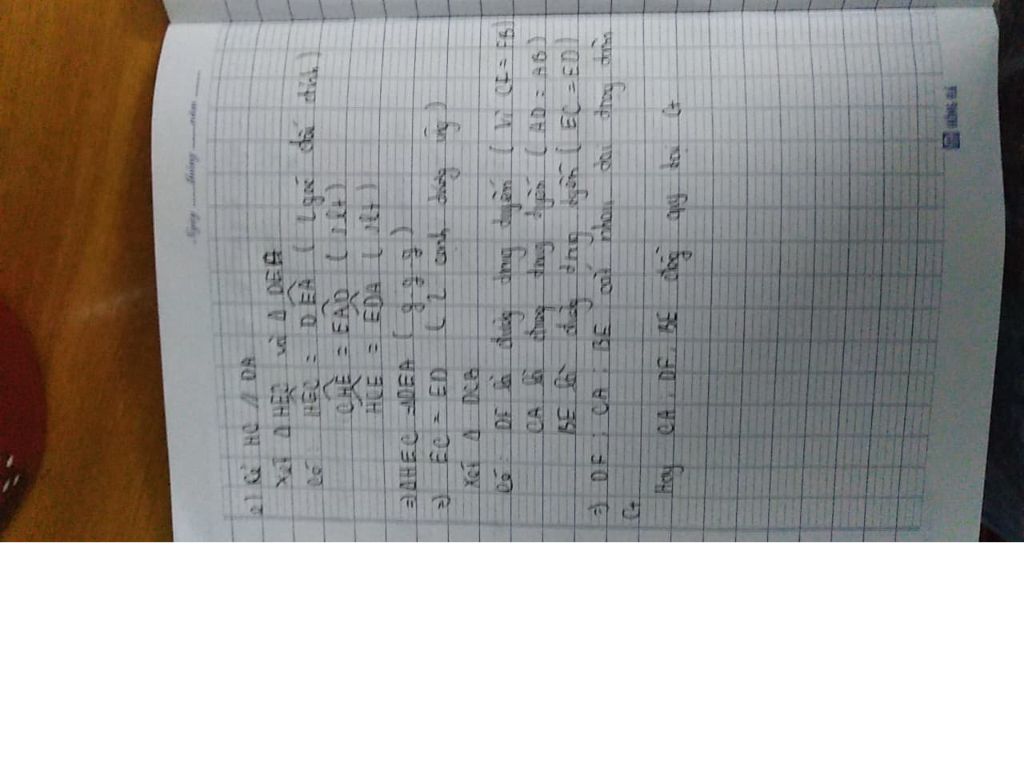 Ngày tháng năm
e) Kẻ HC // DA
Xét Δ HEC và Δ DEA
Có: HEC = DEA ( 2 góc đối đỉnh )
CHE = EAD ( slt )
HCE = EDA ( slt )
=> ΔHEC = ΔDEA ( g g g )
=> EC = ED ( 2 cạnh tương ứng )
Xét Δ DCB
Có: DF là đường trung tuyến ( Vì CF = FB)
CA là đường trung tuyến ( AD = AB )
BE là đường trung tuyến ( EC = ED )
=> DF ; CA ; BE cắt nhau tại trung điểm
G
Hay CA, DF, BE đồng quy tại G
HỒNG HÀ